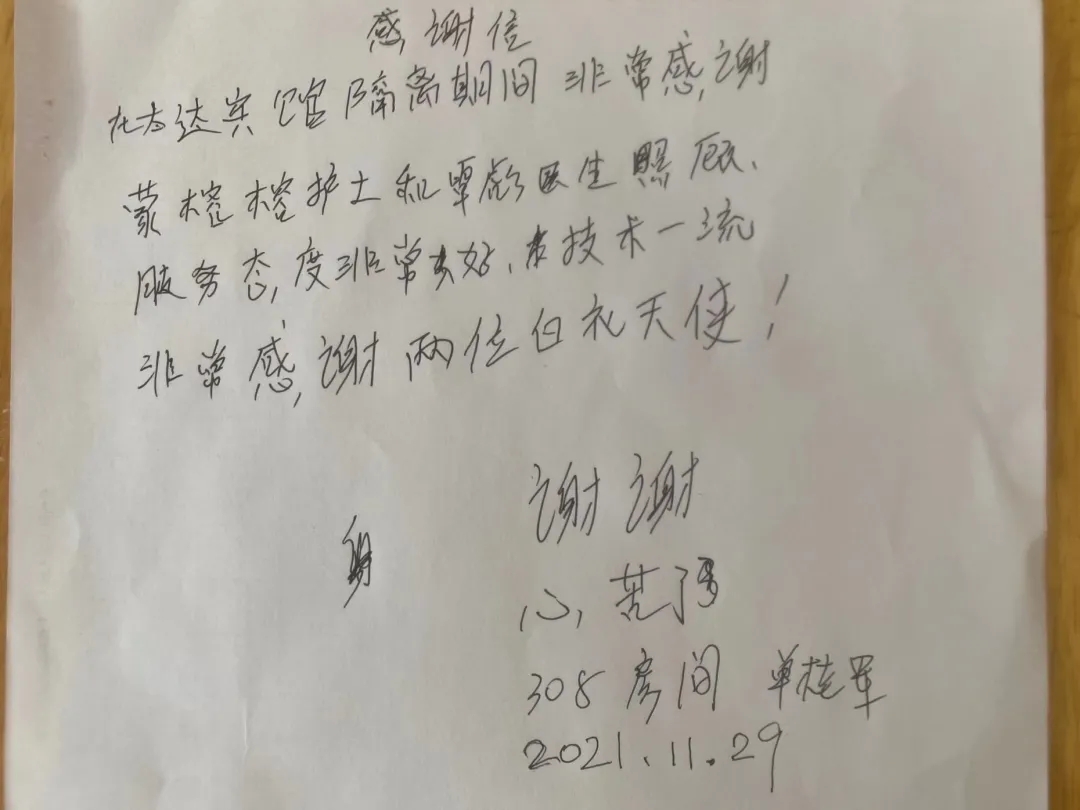 感谢信
在方达宾馆隔离期间 非常感谢
蒙榕榕护士和覃彪医生照顾、
服务态度非常好、技术一流
非常感谢两位白衣天使！
谢谢
心苦了
308房间 单桂军
2021.11.29